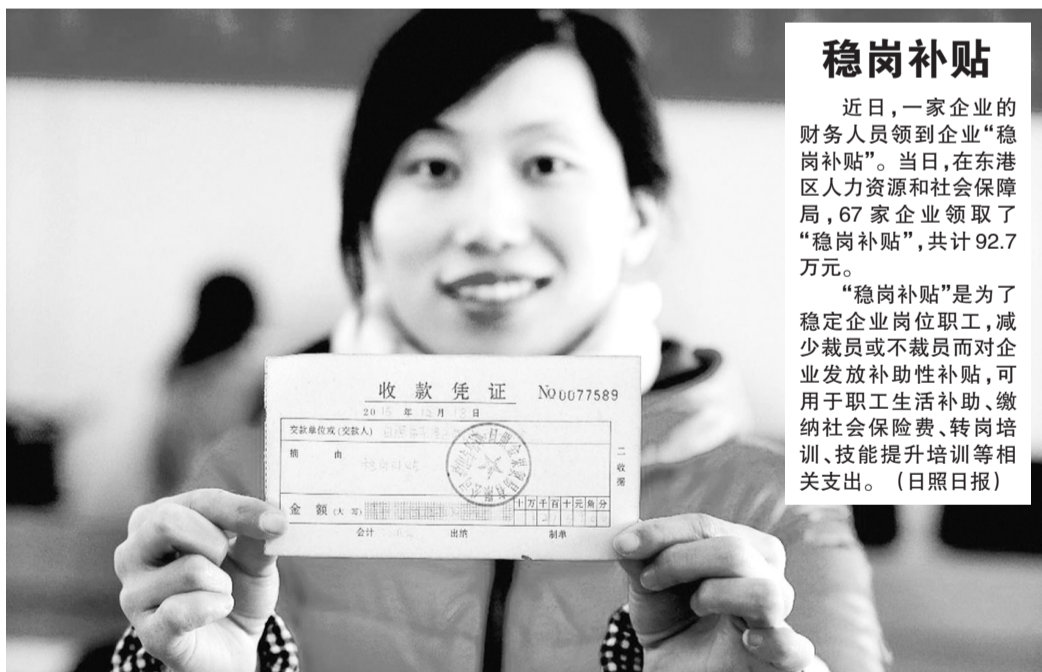 稳岗补贴
近日，一家企业的
财务人员领到企业“稳
岗补贴”。当日，在东港
区人力资源和社会保障
局，67家企业领取了
“稳岗补贴”，共计92.7
万元。
“稳岗补贴”是为了
稳定企业岗位职工，减
少裁员或不裁员而对企
业发放补助性补贴，可
用于职工生活补助、缴
纳社会保险费、转岗培
训、技能提升培训等相
关支出。（日照日报）
收款凭证 No0077589
2015年12月18日
交款单位或(交款人)
摘由
稳岗补贴
二收据
金额(大写) 十万千百十元角分
会计 出纳 制单